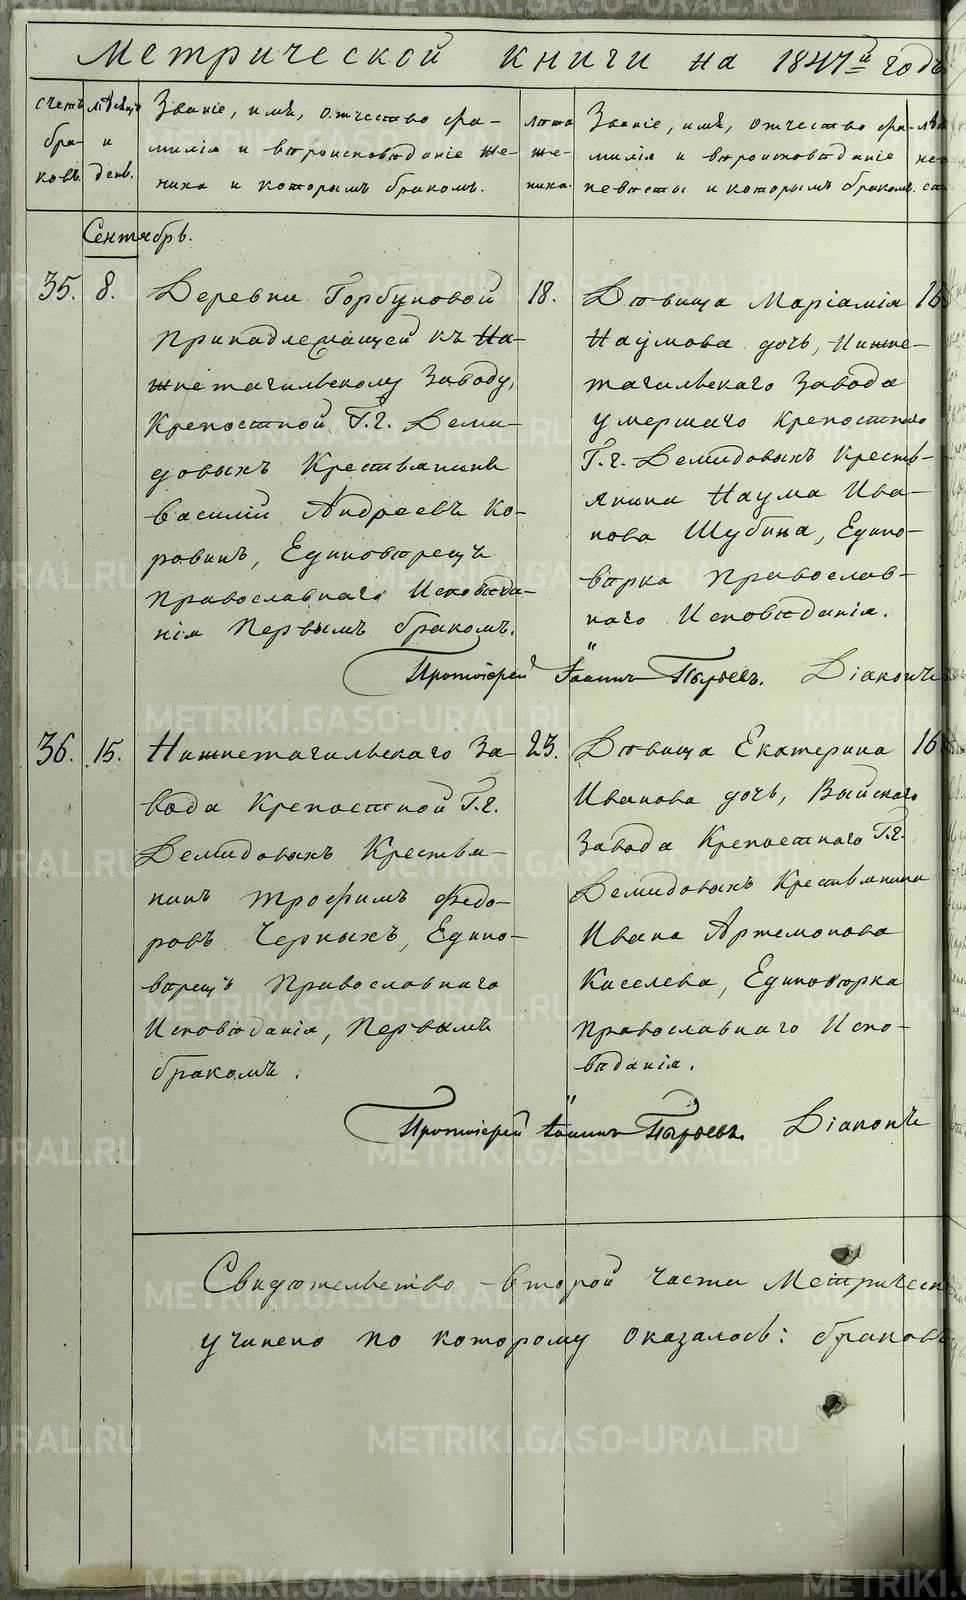 Метрической книги на 1847й годъ
счетъ браковъ.
мѣсяцъ и день.
Званіе, имя, отчество фа-
милія и вѣроисповѣданіе же-
ниха и которымъ бракомъ.
лѣта же-
ниха.
Званіе, имя, отчество фа-
милія и вѣроисповѣданіе
невѣсты и которымъ бракомъ.
Сентябрь.
35. 8.
Деревни Горбуновой
принадлежащей къ Ни-
жнетагильскому Заводу,
Крепостной Г.г. Деми-
довыхъ Крестьянинъ
Василій Андреевъ Ко-
ровинъ, Единовѣрецъ
православнаго Исповѣда-
нія Первымъ бракомъ.
18.
Дѣвица Маріамія
Наумова дочь, Нижне-
тагильскаго Завода
умершаго Крепостнаго
Г.г. Демидовыхъ Кресть-
янина Наума Ива-
нова Шубина, Едино-
вѣрка Православ-
наго Исповѣданія.
16
Протоіерей Іоаннъ Пырьевъ. Діаконъ
36. 15.
Нижнетагильскаго За-
вода Крепостной Г.г.
Демидовыхъ Крестья-
нинъ Трофимъ Федо-
ровъ Черныхъ, Едино-
вѣрецъ Православнаго
Исповѣданія, Первымъ
бракомъ.
23.
Дѣвица Екатерина
Иванова дочь, Выйскаго
Завода Крепостнаго Г.г.
Демидовыхъ Крестьянина
Ивана Артемонова
Киселева, Единовѣрка
православнаго Испо-
вѣданія.
16
Протоіерей Іоаннъ Пырьевъ. Діаконъ
Свидѣтельство второй части Метричес
учинено по которому оказалось: браковъ
METRIKI.GASO-URAL.RU